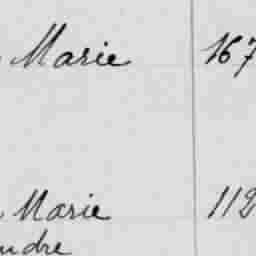 Marie 167
Marie 112
ndre